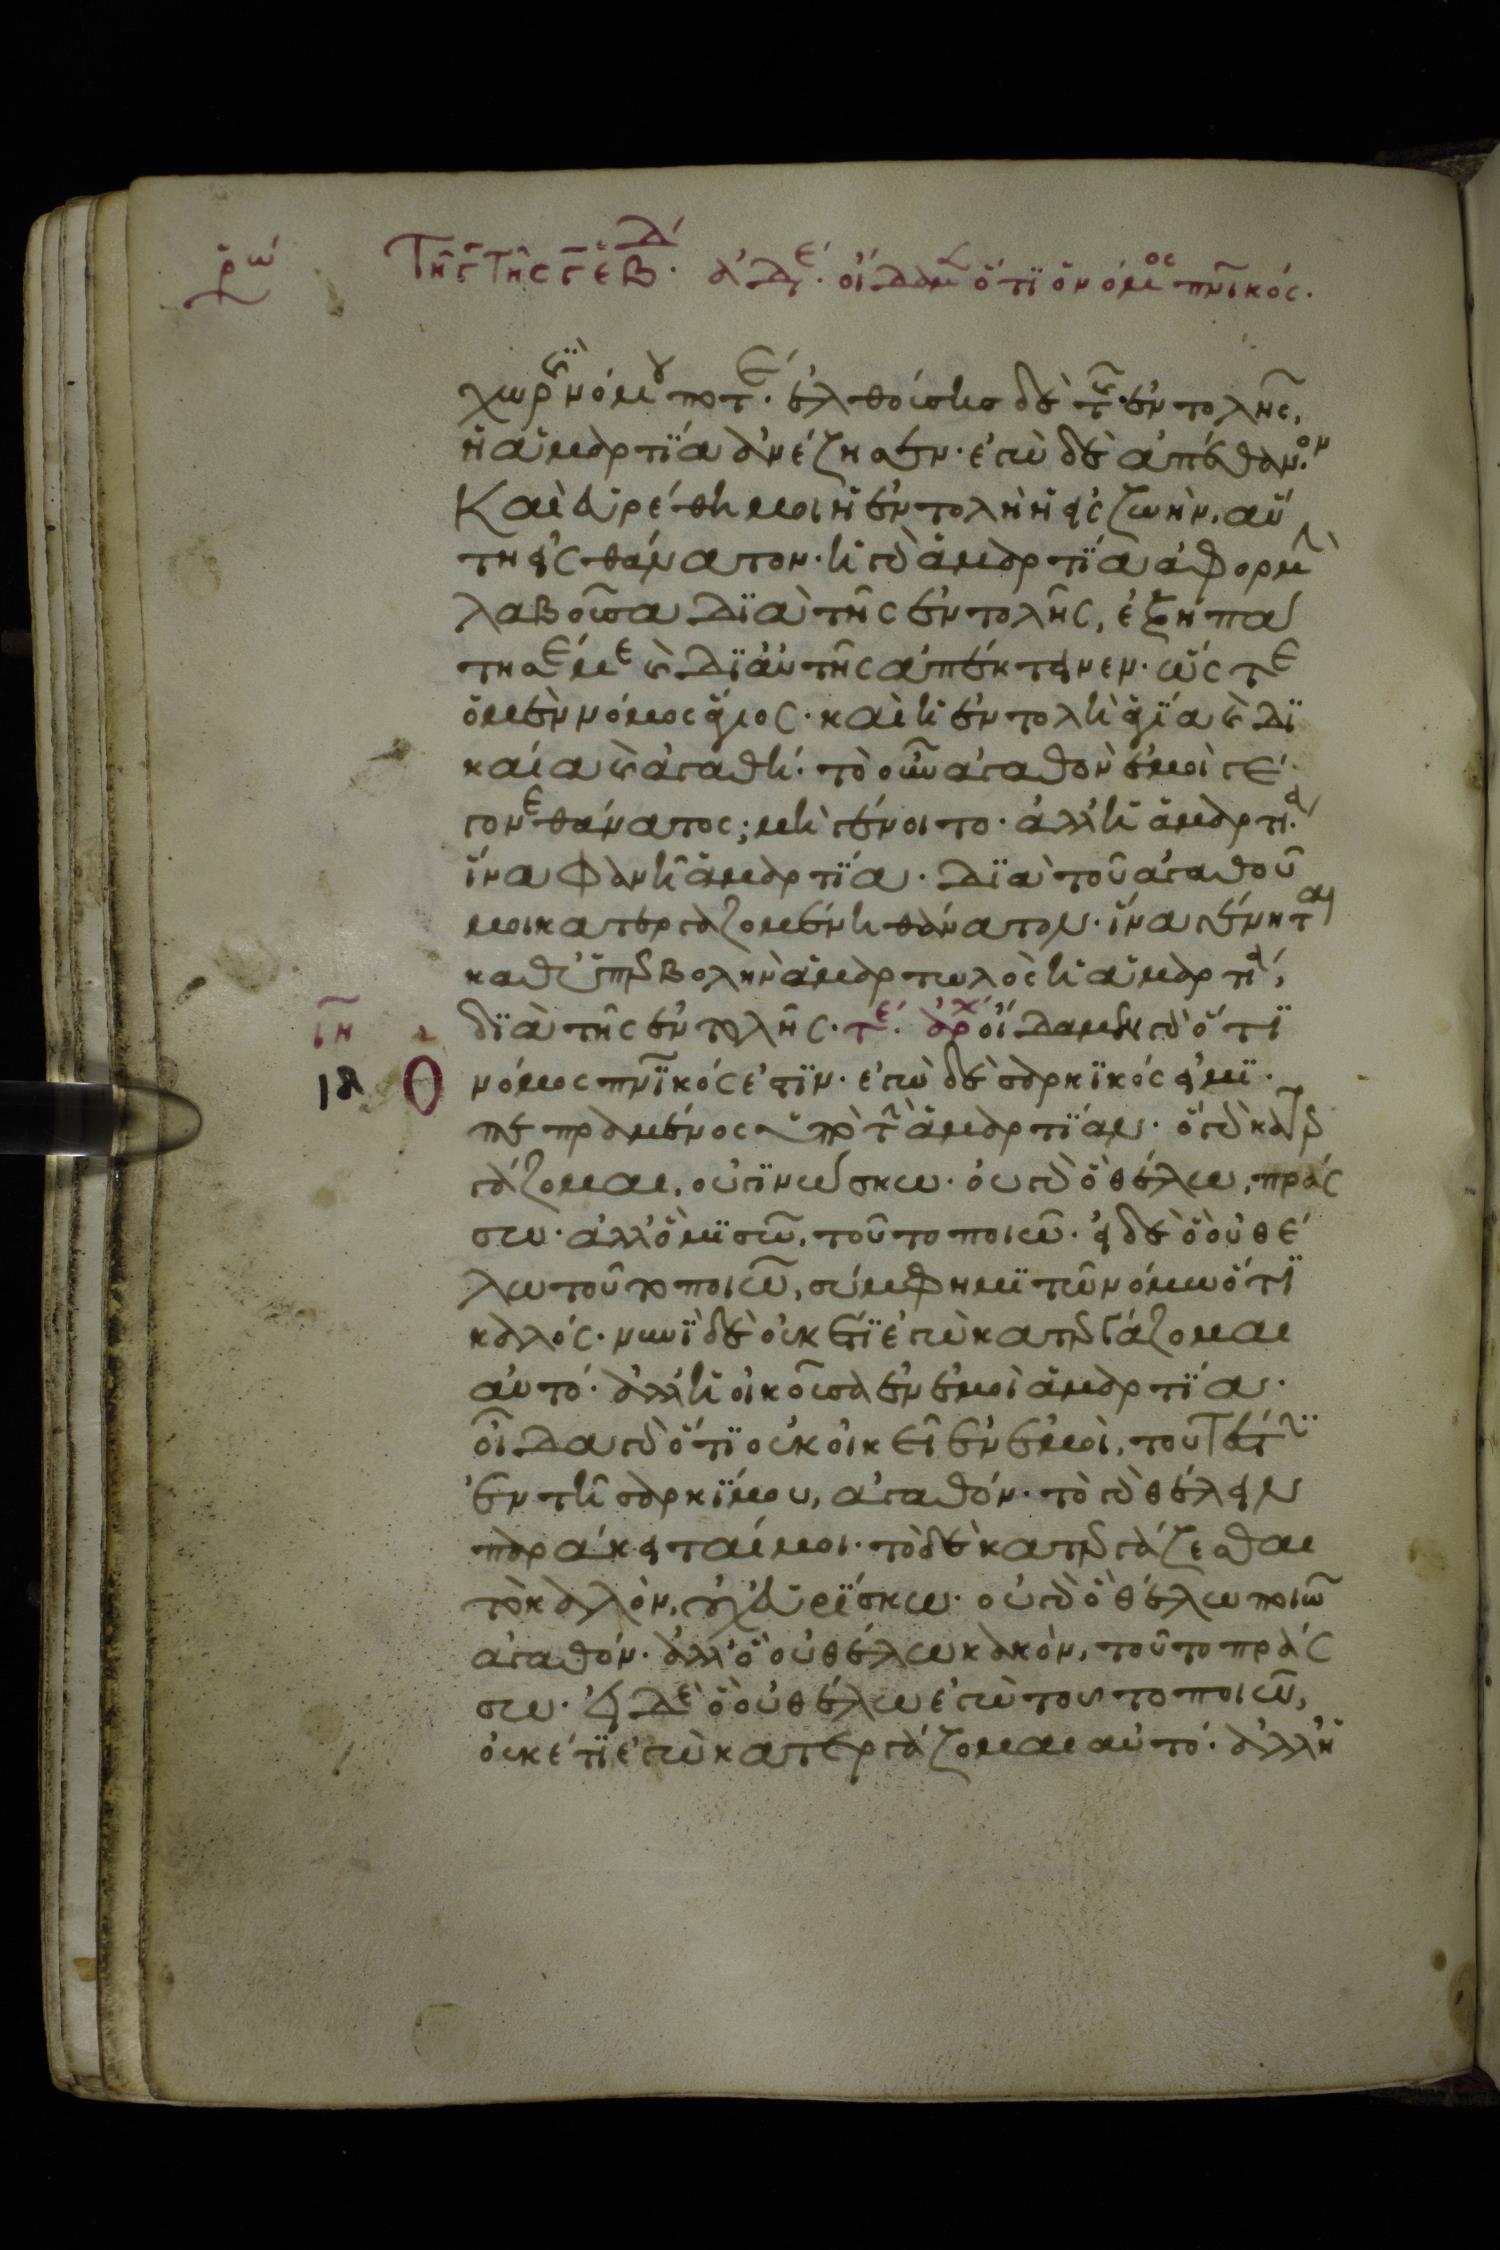 ρω
Τῇ ϛ τῆς ϛ ἑβδ. ἀδε. οἴδαμ ὅτϊ ὁ νόμος πνϊκός.
χωρὶς νόμου ποτέ. ἐλθούσης δὲ τῆς ἐντολῆς,
ἡ ἁμαρτΐα ἀνέζησεν. ἐγὼ δὲ ἀπέθανον.
Καὶ εὑρέθη μοι ἡ ἐντολὴ ἡ εἰς ζωὴν, αὕ
τη εἰς θάνατον. ἡ γὰρ ἁμαρτΐα ἀφορμὴν
λαβοῦσα δϊὰ τῆς ἐντολῆς, ἐξηπά
τησέ με καὶ δϊ αὐτῆς ἀπέκτεινεν. ὥστε
ὁ μὲν νόμος ἅγιος. καὶ ἡ ἐντολὴ ἁγΐα καὶ δϊ
καία καὶ ἀγαθή. τὸ οὖν ἀγαθὸν ἐμοὶ γέ
γονε θάνατος; μὴ γένοιτο. ἀλλ' ἡ ἁμαρτία.
ἵνα φανῇ ἁμαρτΐα. δϊὰ τοῦ ἀγαθοῦ
μοι κατεργαζομένη θάνατον. ἵνα γένηται
καθ' ὑπερβολὴν ἁμαρτωλὸς ἡ ἁμαρτία,
ιη δϊὰ τῆς ἐντολῆς. τέ. ἀρχ οἴδαμεν γὰρ ὅτϊ
ιδ Ο νόμος πνϊκός ἐστϊν. ἐγὼ δὲ σαρκϊκός εἰμϊ.
πεπραμένος ὑπὸ τὴν ἁμαρτΐαν. ὃ γὰρ κατερ
γάζομαι, οὐ γϊνώσκω. οὐ γὰρ ὃ θέλω, πράσ
σω. ἀλλ' ὃ μϊσῶ, τοῦτο ποιῶ. εἰ δὲ ὃ οὐ θέ
λω τοῦτο ποιῶ, σύμφημϊ τῶ νόμω ὅτϊ
καλός. νυνῒ δὲ οὐκέτϊ ἐγὼ κατεργάζομαι
αὐτό. ἀλλ' ἡ οἰκοῦσα ἐν ἐμοὶ ἁμαρτΐα.
οἶδα γὰρ ὅτϊ οὐκ οἰκεῖ ἐν ἐμοὶ, τουτέστϊν
ἐν τῆ σαρκΐ μου, ἀγαθόν. τὸ γὰρ θέλειν
παράκειταί μοι. τὸ δὲ κατεργάζεσθαι
τὸ καλὸν, οὐχ εὑρΐσκω. οὐ γὰρ ὃ θέλω ποιῶ
ἀγαθόν. ἀλλ' ὃ οὐ θέλω κακὸν, τοῦτο πράσ
σω. εἰ δὲ ὃ οὐ θέλω ἐγὼ τοῦτο ποιῶ,
οὐκέτϊ ἐγὼ κατεργάζομαι αὐτό. ἀλλ' ἡ